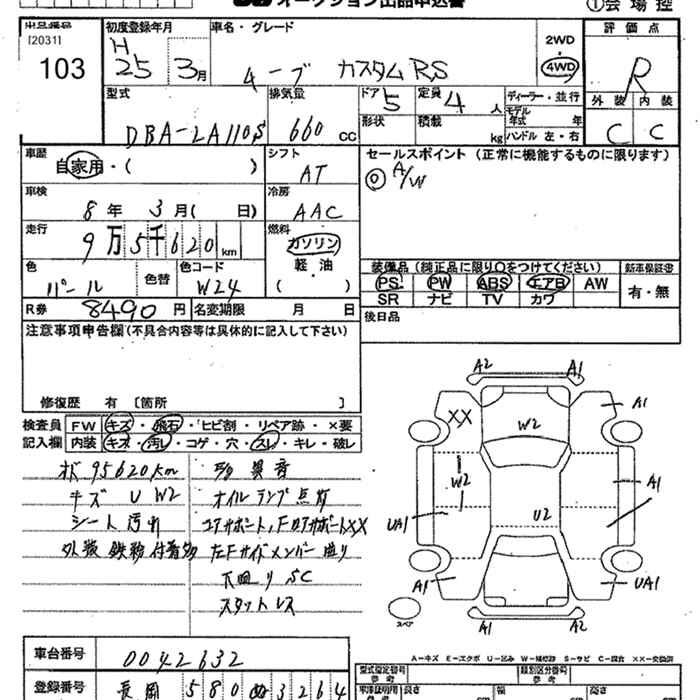 オークション出品申込書
①会場控
出品番号 初度登録年月 車名・グレード 評価点
[2031]
103
H
25 3月
ムーブ カスタムRS
2WD
4WD
R
型式 排気量 ドア 定員 ディーラー・並行 外装 内装
DBA-LA110S 660CC 5 4人 モデル年式 年
形状 積載 kg ハンドル 左・右 C C
車歴 シフト セールスポイント(正常に機能するものに限ります)
自家用・( ) AT ◎ A/W
車検 冷房
8年 3月( 日) AAC
走行 燃料
9万5千620km ガソリン
軽・油
( )
色 色替 色コード
パール W24
装備品(純正品に限り○をつけてください) 新車保証書
PS PW ABS エアB AW 有・無
SR ナビ TV カワ
R券 8490円 名変期限 月 日
後日品
注意事項申告欄(不具合内容等は具体的に記入して下さい)
修復歴 有 〔箇所 〕
検査員記入欄
FW キズ・飛石・ヒビ割・リペア跡・×要
内装 キズ・汚れ・コゲ・穴・スレ・キレ・破レ
95620km 異音
キズ U W2 オイルランプ点灯
シート汚れ コアサポート、FロアサポートXX
外装 鉄粉付着物 左Fサイドメンバー曲り
下回り SC
スタットレス
A2 A1
XX A1
W2
W2 A1
U2
UA1
A1 UA1
スペア
A1 A2
A-キズ E-エクボ U-凹み W-補修跡 S-サビ C-腐食 XX-交換済
車台番号 0042632
型式指定番号 参考 類別区分番号 参考
登録番号 長岡 580 ぬ 3264
長さ 幅 高さ